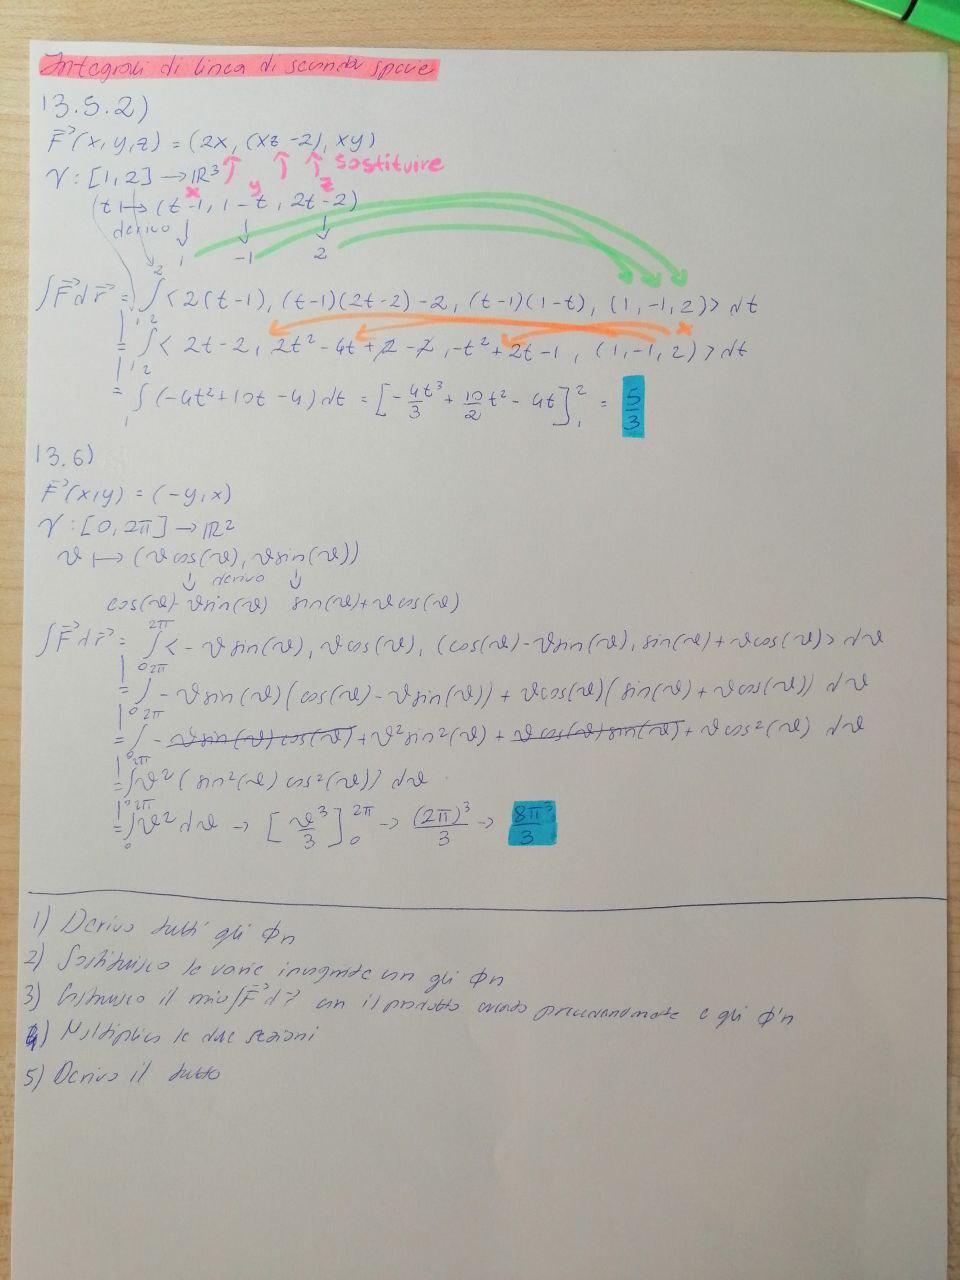 Integrali di linea di seconda specie
13.5.2)
F⃗(x,y,z) = (2x, (xz -2), xy)
γ: [1,2] → ℝ³ sostituire
x y z
t ↦ (t-1, 1-t, 2t-2)
derivo ↓ ↓ ↓
1 -1 2
∫F⃗dr⃗ = ∫₁² < 2(t-1), (t-1)(2t-2)-2, (t-1)(1-t), (1,-1,2)> dt
= ∫₁² < 2t-2, 2t²-4t+2-2, -t²+2t-1, (1,-1,2)> dt
= ∫₁² (-4t²+10t-4) dt = [-4t³/3 + 10/2 t² - 4t]₁² = 5/3
13.6)
F⃗(x,y) = (-y,x)
γ: [0,2π] → ℝ²
ϑ ↦ (ϑcos(ϑ), ϑsin(ϑ))
↓ derivo ↓
cos(ϑ)-ϑsin(ϑ) sin(ϑ)+ϑcos(ϑ)
∫F⃗dr⃗ = ∫₀^2π <-ϑsin(ϑ), ϑcos(ϑ), (cos(ϑ)-ϑsin(ϑ), sin(ϑ)+ϑcos(ϑ)> dϑ
= ∫₀^2π -ϑsin(ϑ)(cos(ϑ)-ϑsin(ϑ)) + ϑcos(ϑ)(sin(ϑ)+ϑcos(ϑ)) dϑ
= ∫₀^2π -ϑsin(ϑ)cos(ϑ)+ϑ²sin²(ϑ) + ϑcos(ϑ)sin(ϑ)+ϑcos²(ϑ) dϑ
= ∫₀^2π ϑ²(sin²(ϑ) cos²(ϑ)) dϑ
= ∫₀^2π ϑ² dϑ → [ϑ³/3]₀^2π → (2π)³/3 → 8π³/3
1) Derivo tutti gli ϕn
2) Sostituisco le varie incognite con gli ϕn
3) Costruisco il mio ∫F⃗dr⃗ con il prodotto precedentemente e gli ϕ'n
4) Moltiplico le due sezioni
5) Derivo il tutto